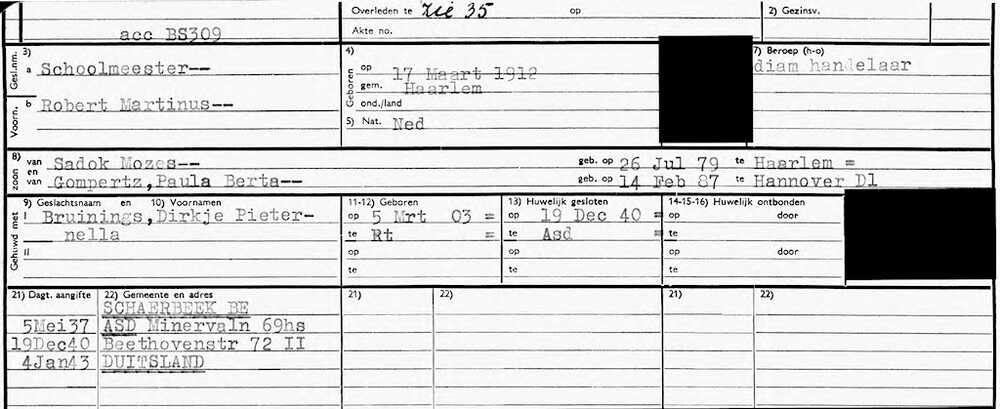 Overleden te zie 35 op 2) Gezinsv.
acc BS309 Akte no.
Gesl.nm. 3) a Schoolmeester--
Voorn. b Robert Martinus--
Geboren 4) op 17 Maart 1912
gem. Haarlem
ond./land
5) Nat. Ned
7) Beroep (h-o)
diam handelaar
8) zoon van Sadok Mozes-- geb. op 26 Jul 79 te Haarlem =
en van Gompertz,Paula Berta-- geb. op 14 Feb 87 te Hannover Dl
Gehuwd met 9) Geslachtsnaam en 10) Voornamen 11-12) Geboren 13) Huwelijk gesloten 14-15-16) Huwelijk ontbonden
I Bruinings,Dirkje Pieter- op 5 Mrt 03 = op 19 Dec 40 = op door
nella te Rt = te Asd = te
II op op op door
te te te
21) Dagt. aangifte 22) Gemeente en adres 21) 22) 21) 22)
SCHAERBEEK BE
5Mei37 ASD Minervaln 69hs
19Dec40 Beethovenstr 72 II
4Jan43 DUITSLAND